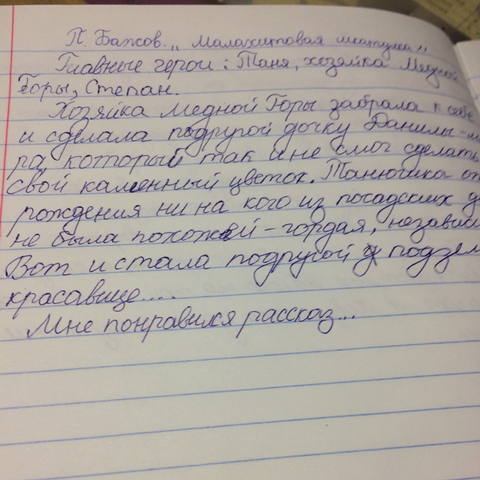 П. Бажов. „ Малахитовая шкатулка"
Главные герои: Таня, хозяйка Медной
Горы, Степан.
Хозяйка Медной Горы забрала к себе
и сделала подругой дочку Данилы-
ра, который так и не смог сделать
свой каменный цветок. Танюшка от
рождения ни на кого из посадских
не была похожей - гордая, независи
Вот и стала подругой подзем
красавице....
Мне понравился рассказ...